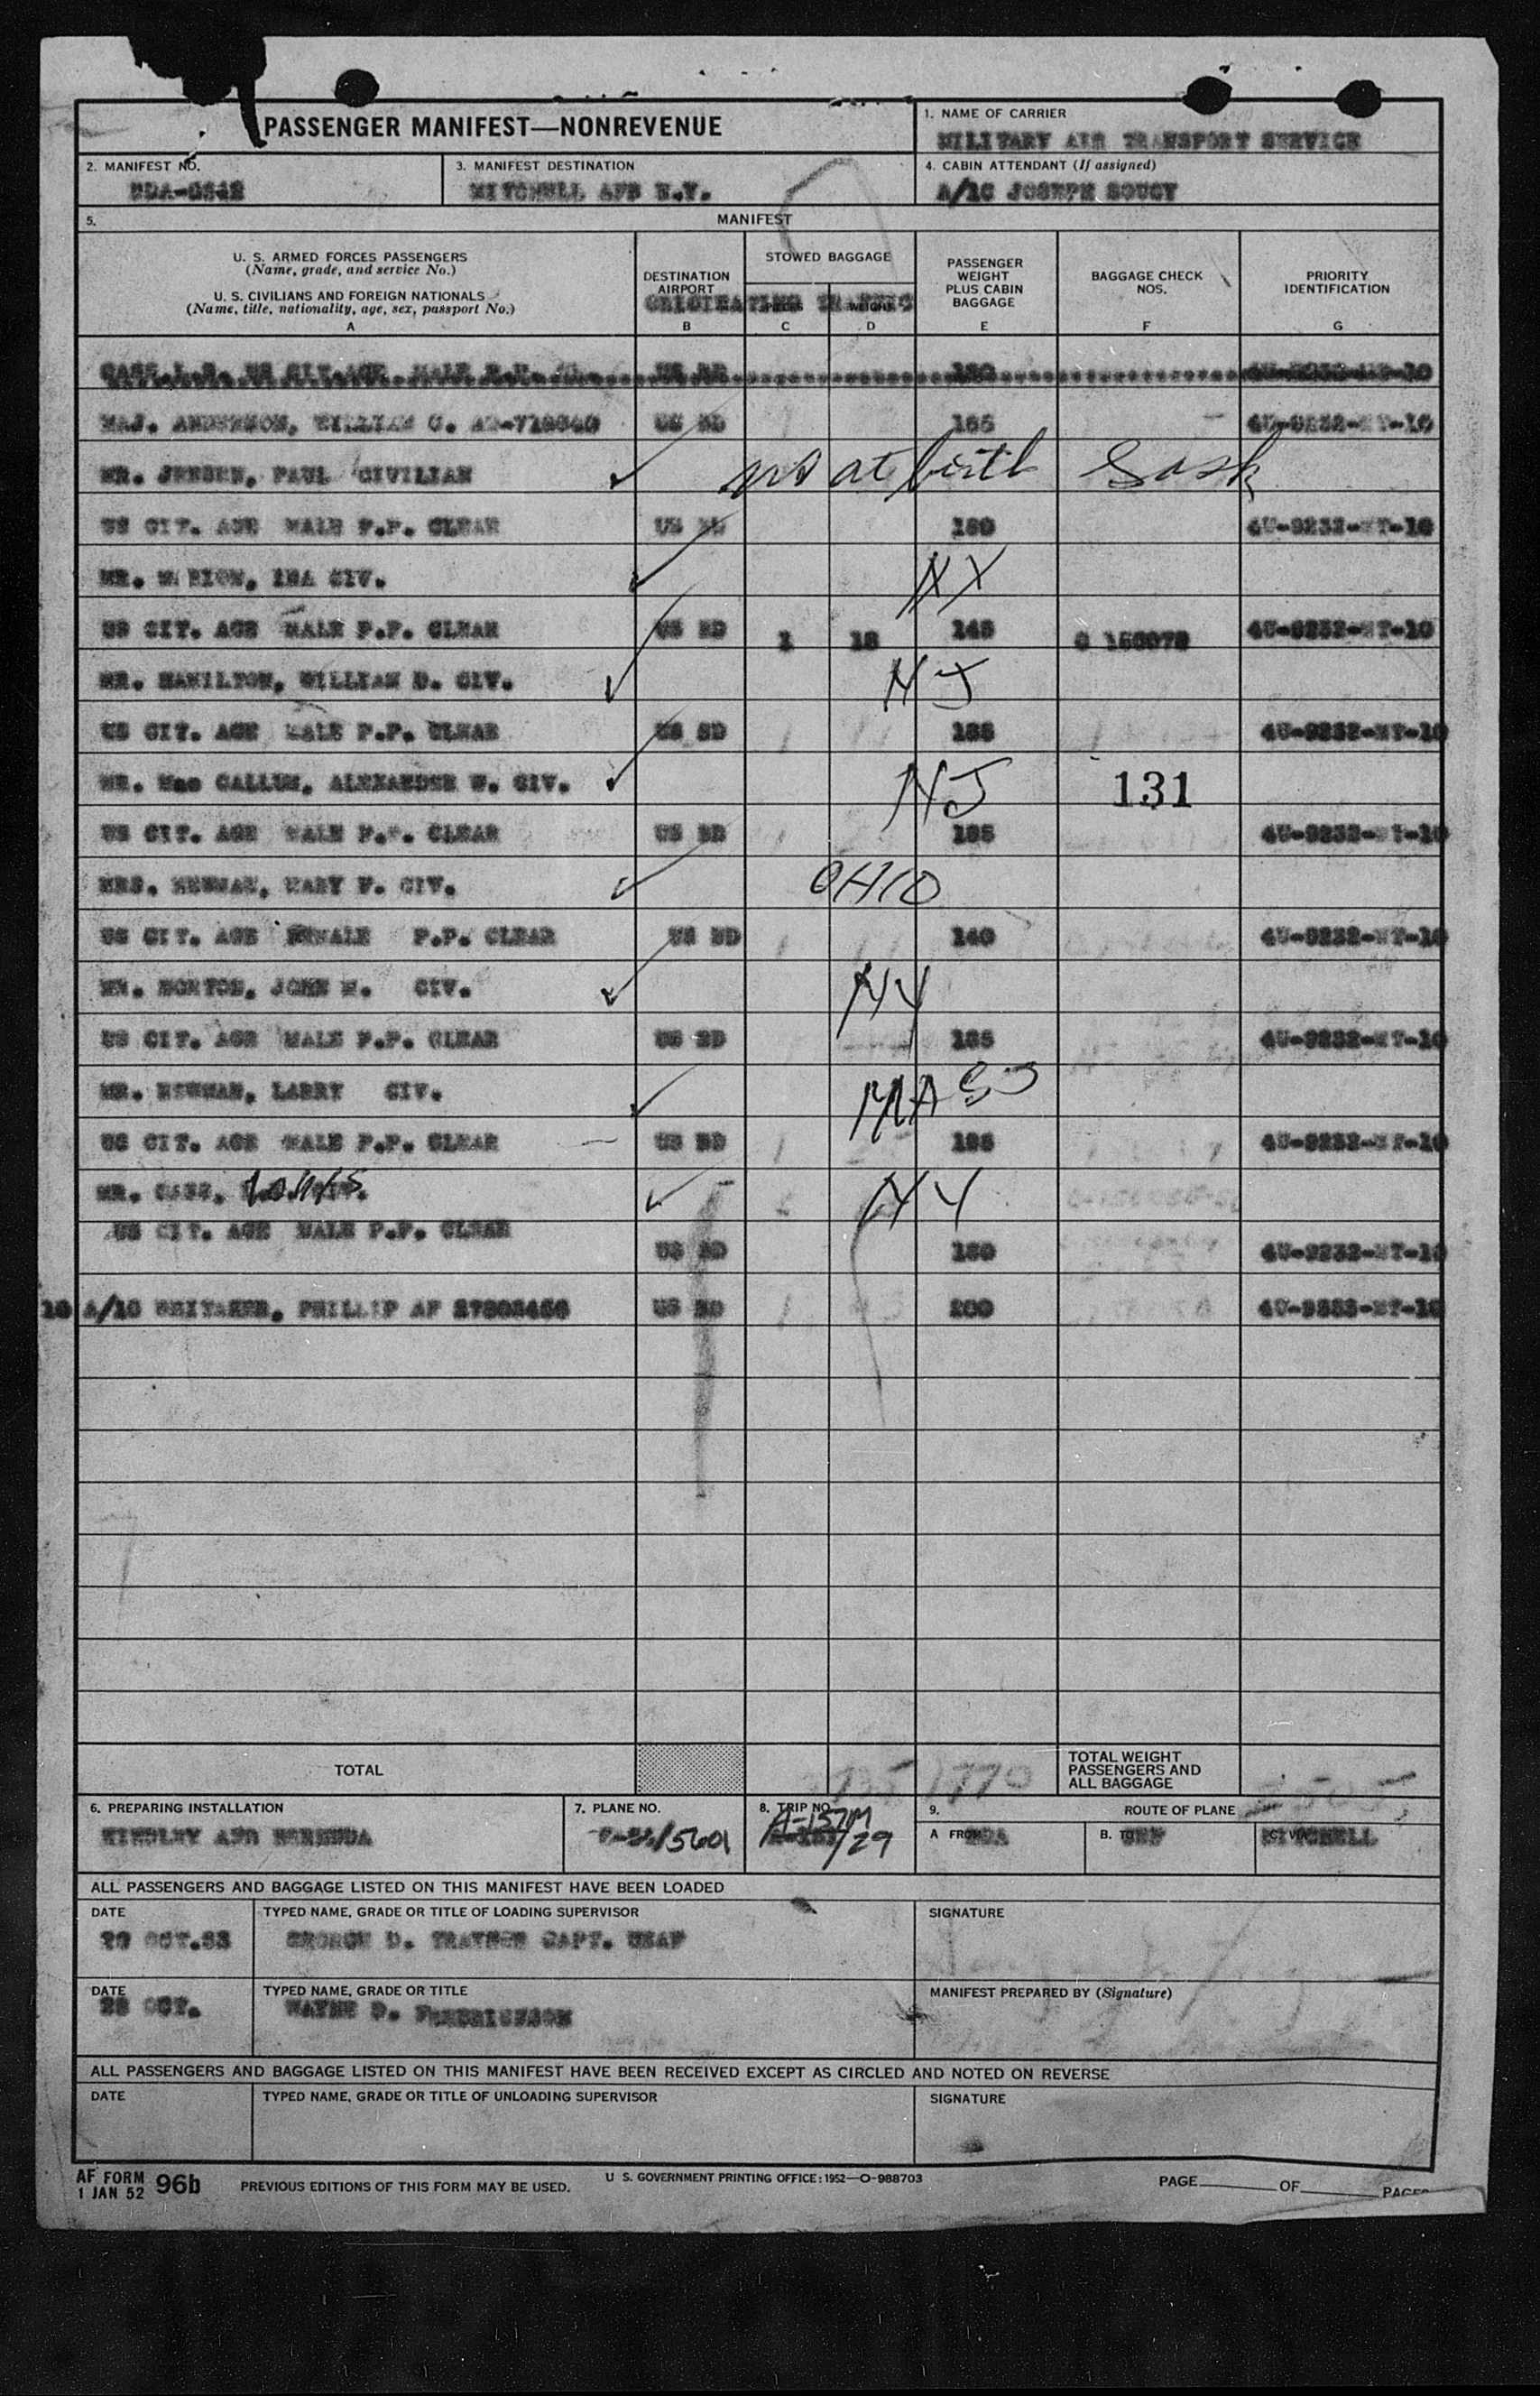 PASSENGER MANIFEST—NONREVENUE
1. NAME OF CARRIER
MILITARY AIR TRANSPORT SERVICE
2. MANIFEST NO.
3. MANIFEST DESTINATION
MITCHELL AFB N.Y.
4. CABIN ATTENDANT (If assigned)
A/1C JOSEPH SOUCY
5. MANIFEST
U. S. ARMED FORCES PASSENGERS
(Name, grade, and service No.)
U. S. CIVILIANS AND FOREIGN NATIONALS
(Name, title, nationality, age, sex, passport No.)
A
DESTINATION
AIRPORT
B
STOWED BAGGAGE
ORIGINATING TRAFFIC
PIECES
C
WEIGHT
D
PASSENGER
WEIGHT
PLUS CABIN
BAGGAGE
E
BAGGAGE CHECK
NOS.
F
PRIORITY
IDENTIFICATION
G
MAJ. ANDERSON, WILLIAM 165
MR. JENSEN, PAUL CIVILIAN US at birth Sask
US CIT. AGE MALE P.P. CLEAR 180 4U-9232-MT-10
MR. INA CIV.
US CIT. AGE MALE P.P. CLEAR 1 18 145 4U-9232-MT-10
MR. HAMILTON, WILLIAM D. CIV. NJ
US CIT. AGE MALE P.P. CLEAR 4U-9232-MT-10
MR. Mac CALLUM, ALEXANDER W. CIV. NJ 131
US CIT. AGE MALE P.P. CLEAR 4U-9232-MT-10
MRS. NEWMAN, MARY F. CIV. OHIO
US CIT. AGE FEMALE P.P. CLEAR 140 4U-9232-MT-10
MR. JOHN CIV. NY
US CIT. AGE MALE P.P. CLEAR 4U-9232-MT-10
MR. NEWMAN, LARRY CIV. MASS
US CIT. AGE MALE P.P. CLEAR 4U-9232-MT-10
MR. CASS, LOUIS NY
US CIT. AGE MALE P.P. CLEAR
180 4U-9232-MT-10
10 A/1C WHITAKER, PHILLIP AF 200
TOTAL 1770
TOTAL WEIGHT
PASSENGERS AND
ALL BAGGAGE
6. PREPARING INSTALLATION
KINDLEY AFB BERMUDA
7. PLANE NO.
/5601
8. TRIP NO.
A-157M
/29
9. ROUTE OF PLANE
A FROM BDA
B. TO
C. VIA MITCHELL
ALL PASSENGERS AND BAGGAGE LISTED ON THIS MANIFEST HAVE BEEN LOADED
DATE
TYPED NAME, GRADE OR TITLE OF LOADING SUPERVISOR
SIGNATURE
OCT.53
GEORGE D. CAPT. USAF
DATE
TYPED NAME, GRADE OR TITLE
MANIFEST PREPARED BY (Signature)
OCT.
WAYNE D. FREDRICKSON
ALL PASSENGERS AND BAGGAGE LISTED ON THIS MANIFEST HAVE BEEN RECEIVED EXCEPT AS CIRCLED AND NOTED ON REVERSE
DATE
TYPED NAME, GRADE OR TITLE OF UNLOADING SUPERVISOR
SIGNATURE
AF FORM
1 JAN 52 96b
PREVIOUS EDITIONS OF THIS FORM MAY BE USED.
U S. GOVERNMENT PRINTING OFFICE: 1952—O-988703
PAGE OF PAGES